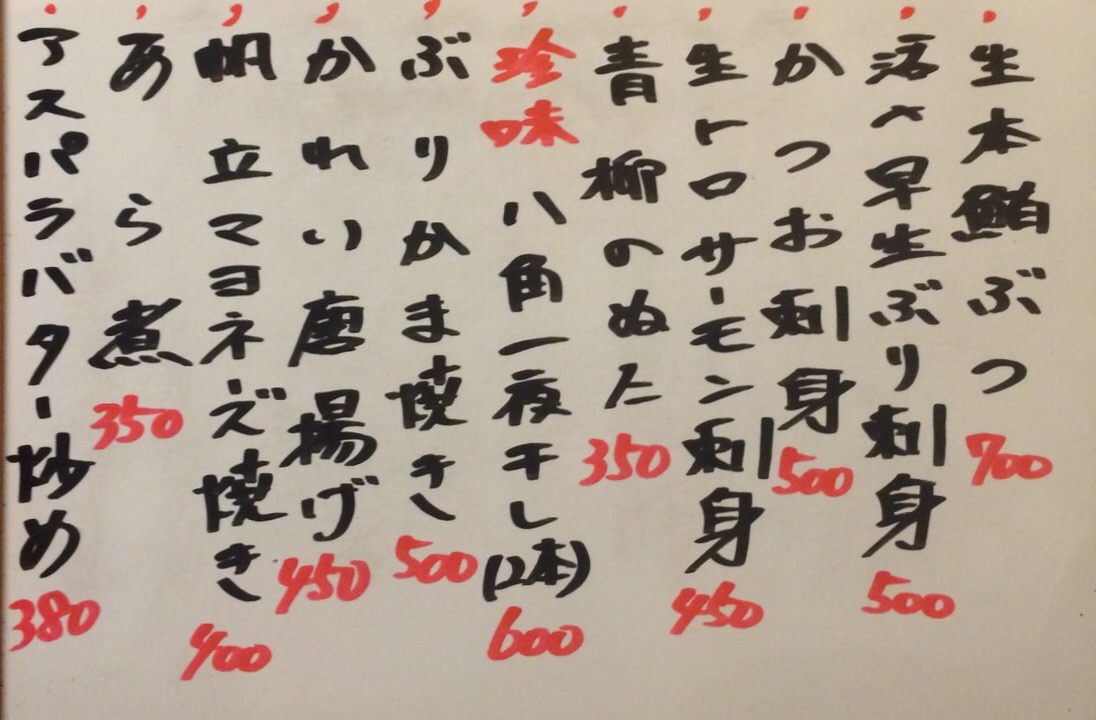 生本鮪ぶつ 700
活〆早生ぶり刺身 500
かつお刺身 500
生トロサーモン刺身 450
青柳のぬた 350
珍味 八角一夜干し(2本) 600
ぶりかま焼き 500
かれい唐揚げ 450
帆立マヨネーズ焼き 400
あら煮 350
アスパラバター炒め 380